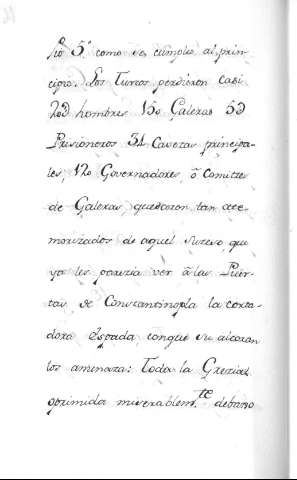 Pio 5º como se cumplio al prin-
cipio. Los Turcos perdieron casi
20D hombres 150 Galeras 5D
Prisioneros 31 Cavezas principa-
les, 120 Governadores, ô Comitres
de Galeras, quedaron tan ate-
morizados de aquel suceso, que
ya les parezia ver â las Puer-
tas de Constantinopla la corta-
dora Espada, con que su
los amenaza: Toda la Grezia
oprimida miserablem.te debaxo